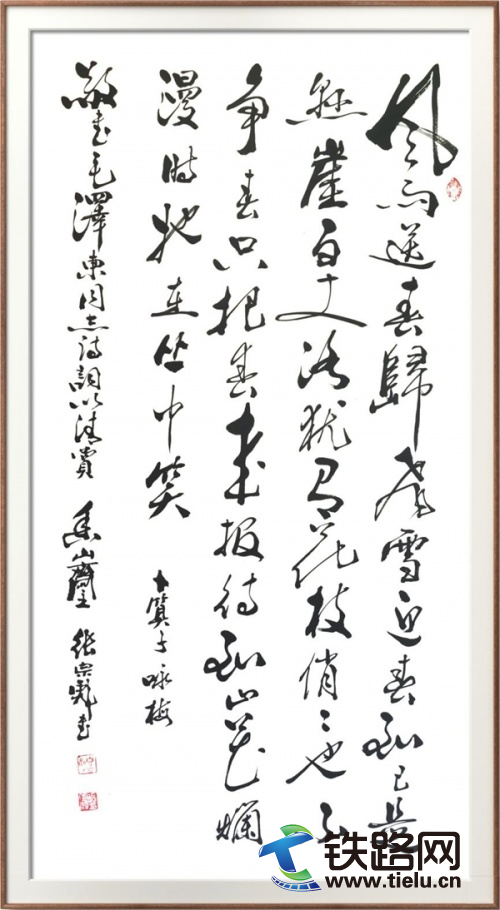 风雨送春歸飛雪迎春到已是
懸崖百丈冰犹有花枝俏俏也不
争春只把春来报待到山花爛
漫时她在丛中笑
卜算子咏梅
敬书毛澤東同志诗詞以清賞 香山 张宗 书
铁路网
www.tielu.cn